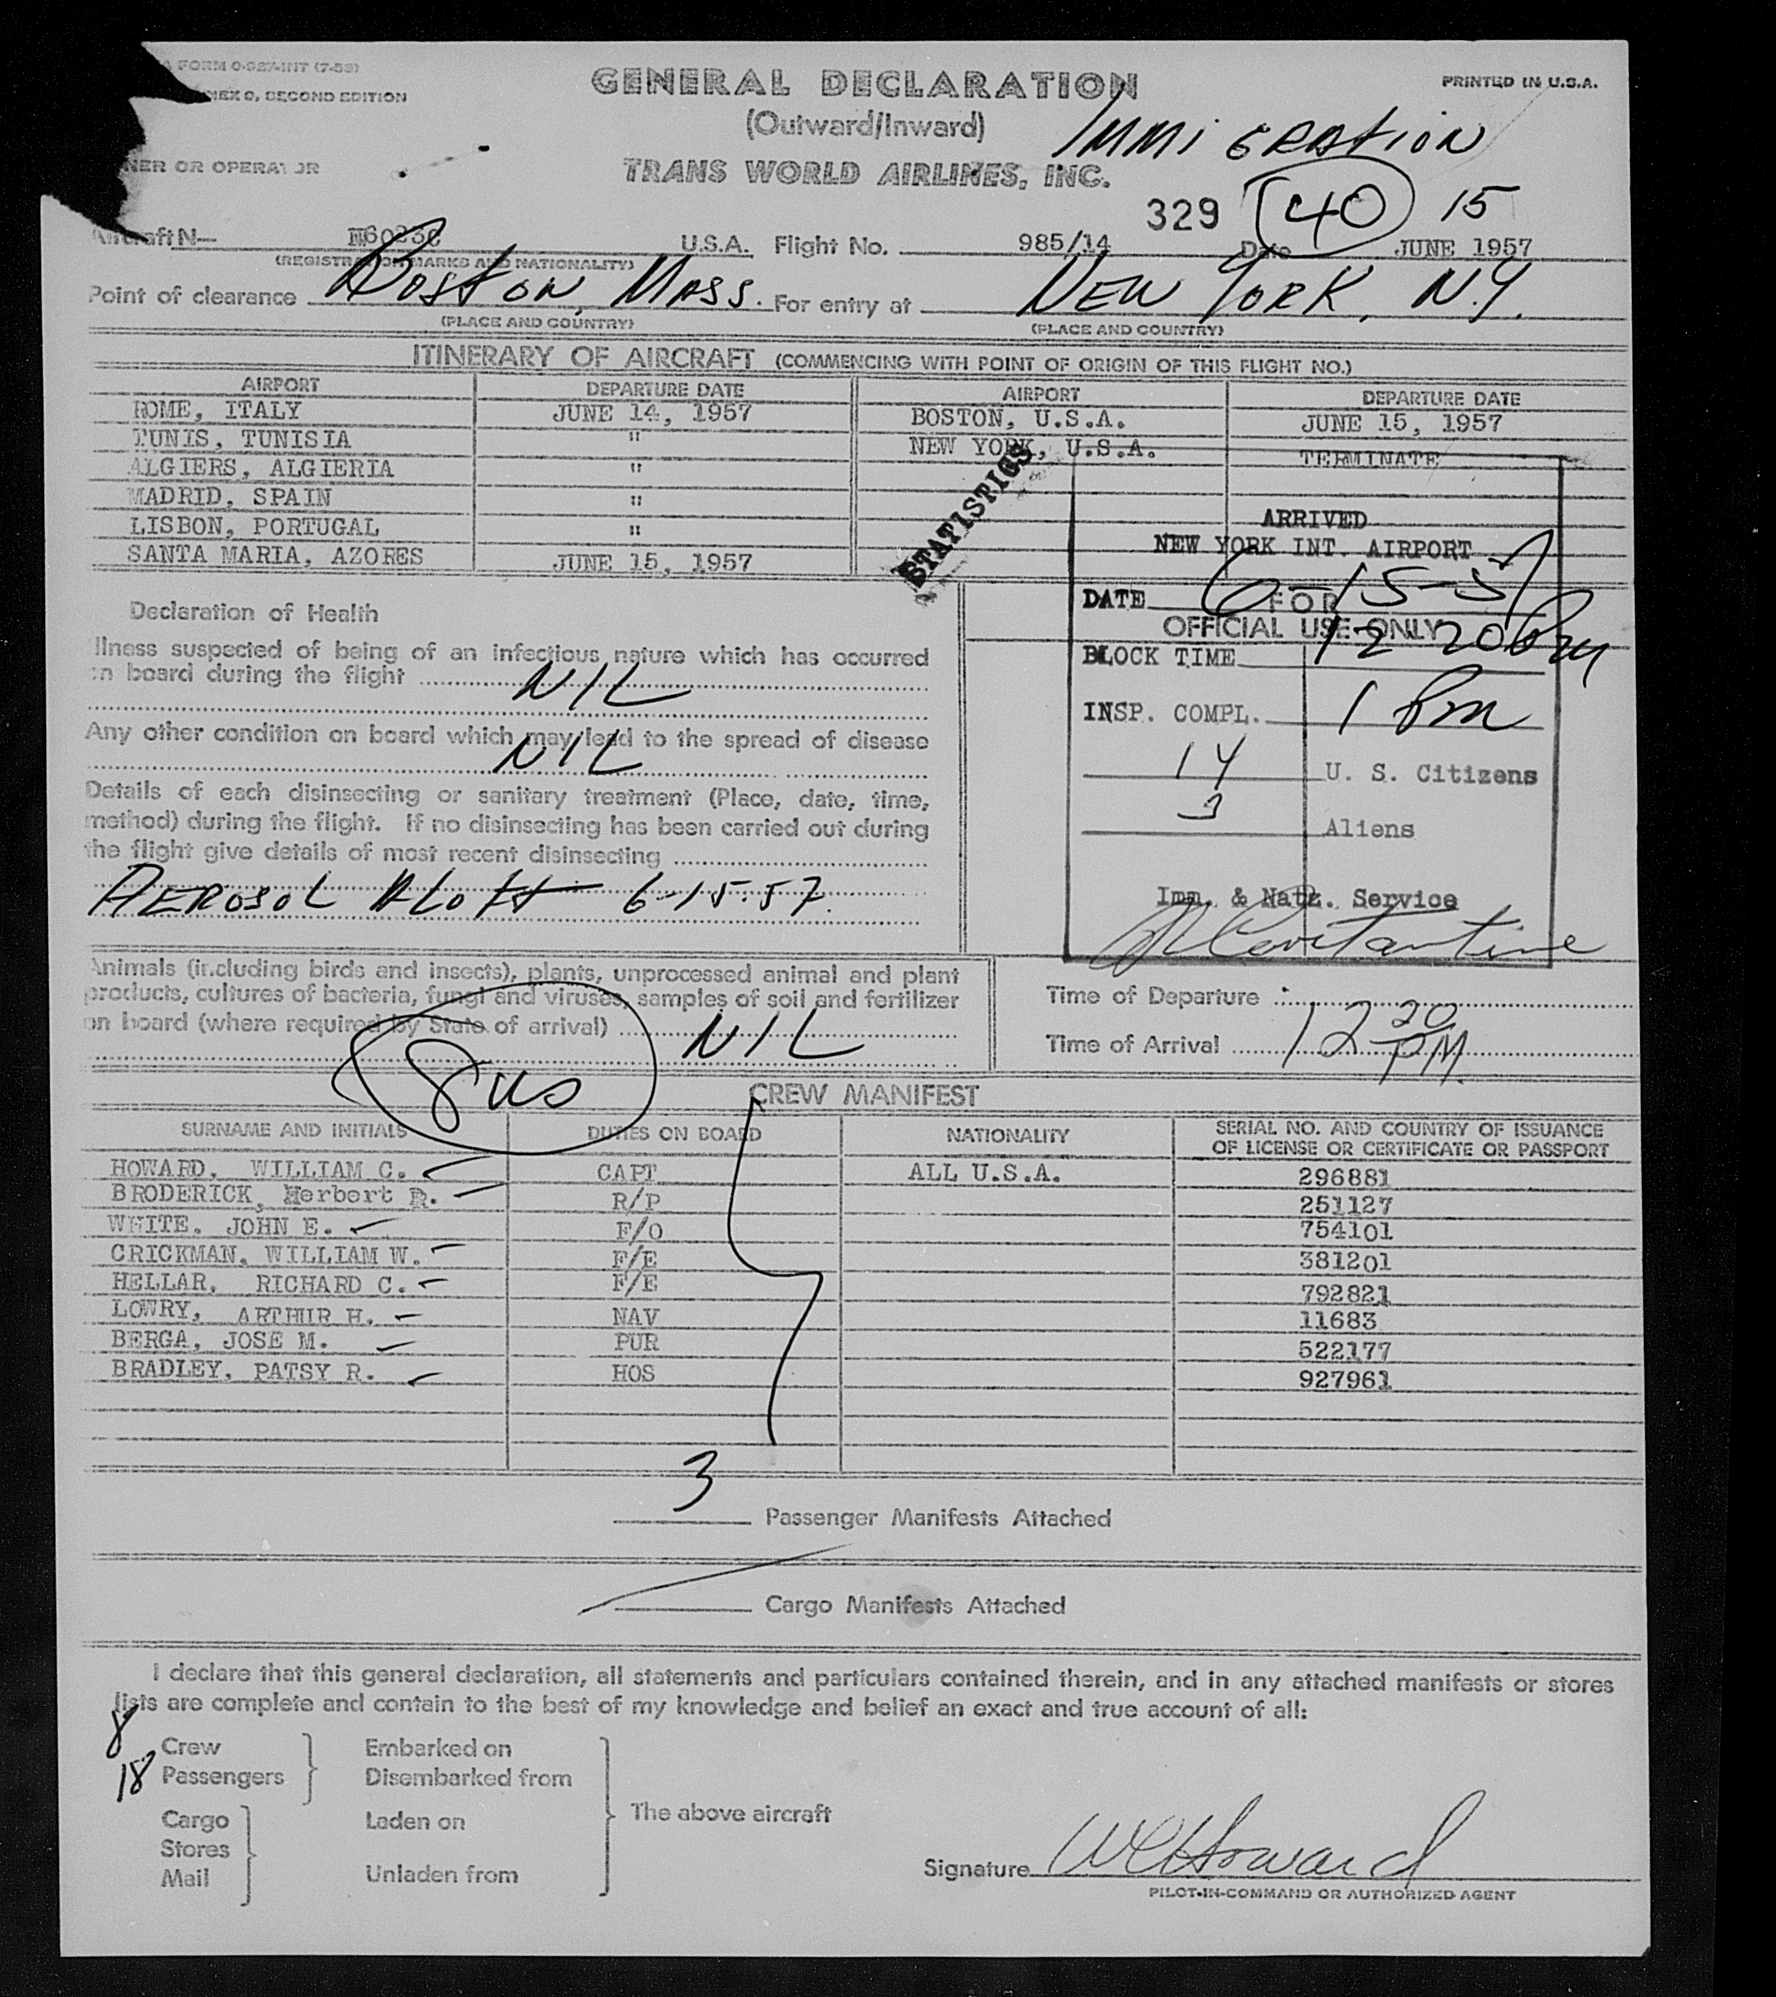 FORM 0-927-INT (7-53)
NEX 9, SECOND EDITION
GENERAL DECLARATION
PRINTED IN U.S.A.
(Outward/Inward)
IMMIGRATION
NER OR OPERATOR
TRANS WORLD AIRLINES, INC.
329 40 15
Aircraft N— N6023C U.S.A. Flight No. 985/14 Date JUNE 1957
(REGISTRATION MARKS AND NATIONALITY)
Point of clearance BOSTON, MASS. For entry at NEW YORK, N.Y.
(PLACE AND COUNTRY) (PLACE AND COUNTRY)
ITINERARY OF AIRCRAFT (COMMENCING WITH POINT OF ORIGIN OF THIS FLIGHT NO.)
AIRPORT DEPARTURE DATE AIRPORT DEPARTURE DATE
ROME, ITALY JUNE 14, 1957 BOSTON, U.S.A. JUNE 15, 1957
TUNIS, TUNISIA " NEW YORK, U.S.A. TERMINATE
ALGIERS, ALGIERIA "
MADRID, SPAIN "
LISBON, PORTUGAL "
SANTA MARIA, AZORES JUNE 15, 1957
STATISTICS
ARRIVED
NEW YORK INT. AIRPORT
DATE 6-15-57
FOR
OFFICIAL USE ONLY
BLOCK TIME 12 20 Pm
INSP. COMPL. 1 Pm
14 U. S. Citizens
3 Aliens
Imm. & Natz. Service
Declaration of Health
Illness suspected of being of an infectious nature which has occurred
on board during the flight NIL
Any other condition on board which may lead to the spread of disease
NIL
Details of each disinsecting or sanitary treatment (Place, date, time,
method) during the flight. If no disinsecting has been carried out during
the flight give details of most recent disinsecting
AEROSOL ALOFT 6-15-57
Animals (including birds and insects), plants, unprocessed animal and plant
products, cultures of bacteria, fungi and viruses, samples of soil and fertilizer
on board (where required by State of arrival) NIL
Time of Departure
Time of Arrival 12 20 PM
8 US
CREW MANIFEST
SURNAME AND INITIALS DUTIES ON BOARD NATIONALITY SERIAL NO. AND COUNTRY OF ISSUANCE
OF LICENSE OR CERTIFICATE OR PASSPORT
HOWARD, WILLIAM C. CAPT ALL U.S.A. 296881
BRODERICK, Herbert R. R/P 251127
WHITE, JOHN E. F/O 754101
CRICKMAN, WILLIAM W. F/E 381201
HELLAR, RICHARD C. F/E 792821
LOWRY, ARTHUR H. NAV 11683
BERGA, JOSE M. PUR 522177
BRADLEY, PATSY R. HOS 927961
3 Passenger Manifests Attached
Cargo Manifests Attached
I declare that this general declaration, all statements and particulars contained therein, and in any attached manifests or stores
lists are complete and contain to the best of my knowledge and belief an exact and true account of all:
8 Crew Embarked on
18 Passengers Disembarked from
Cargo Laden on The above aircraft
Stores
Mail Unladen from
Signature WCHoward
PILOT-IN-COMMAND OR AUTHORIZED AGENT